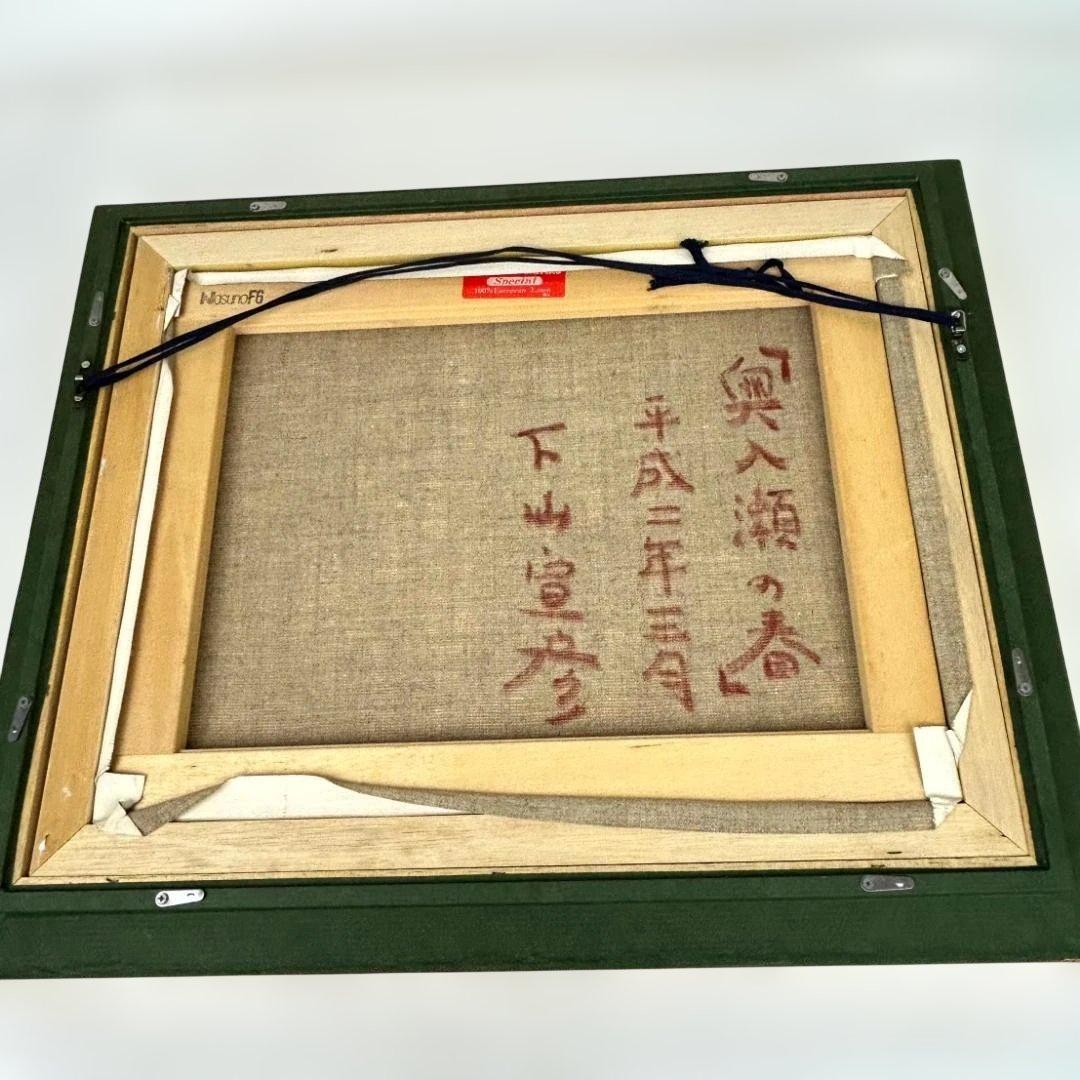 「奥入瀬の春」
平成二年三月
下山宣彦
MasunoF6
Special
100% European Linen